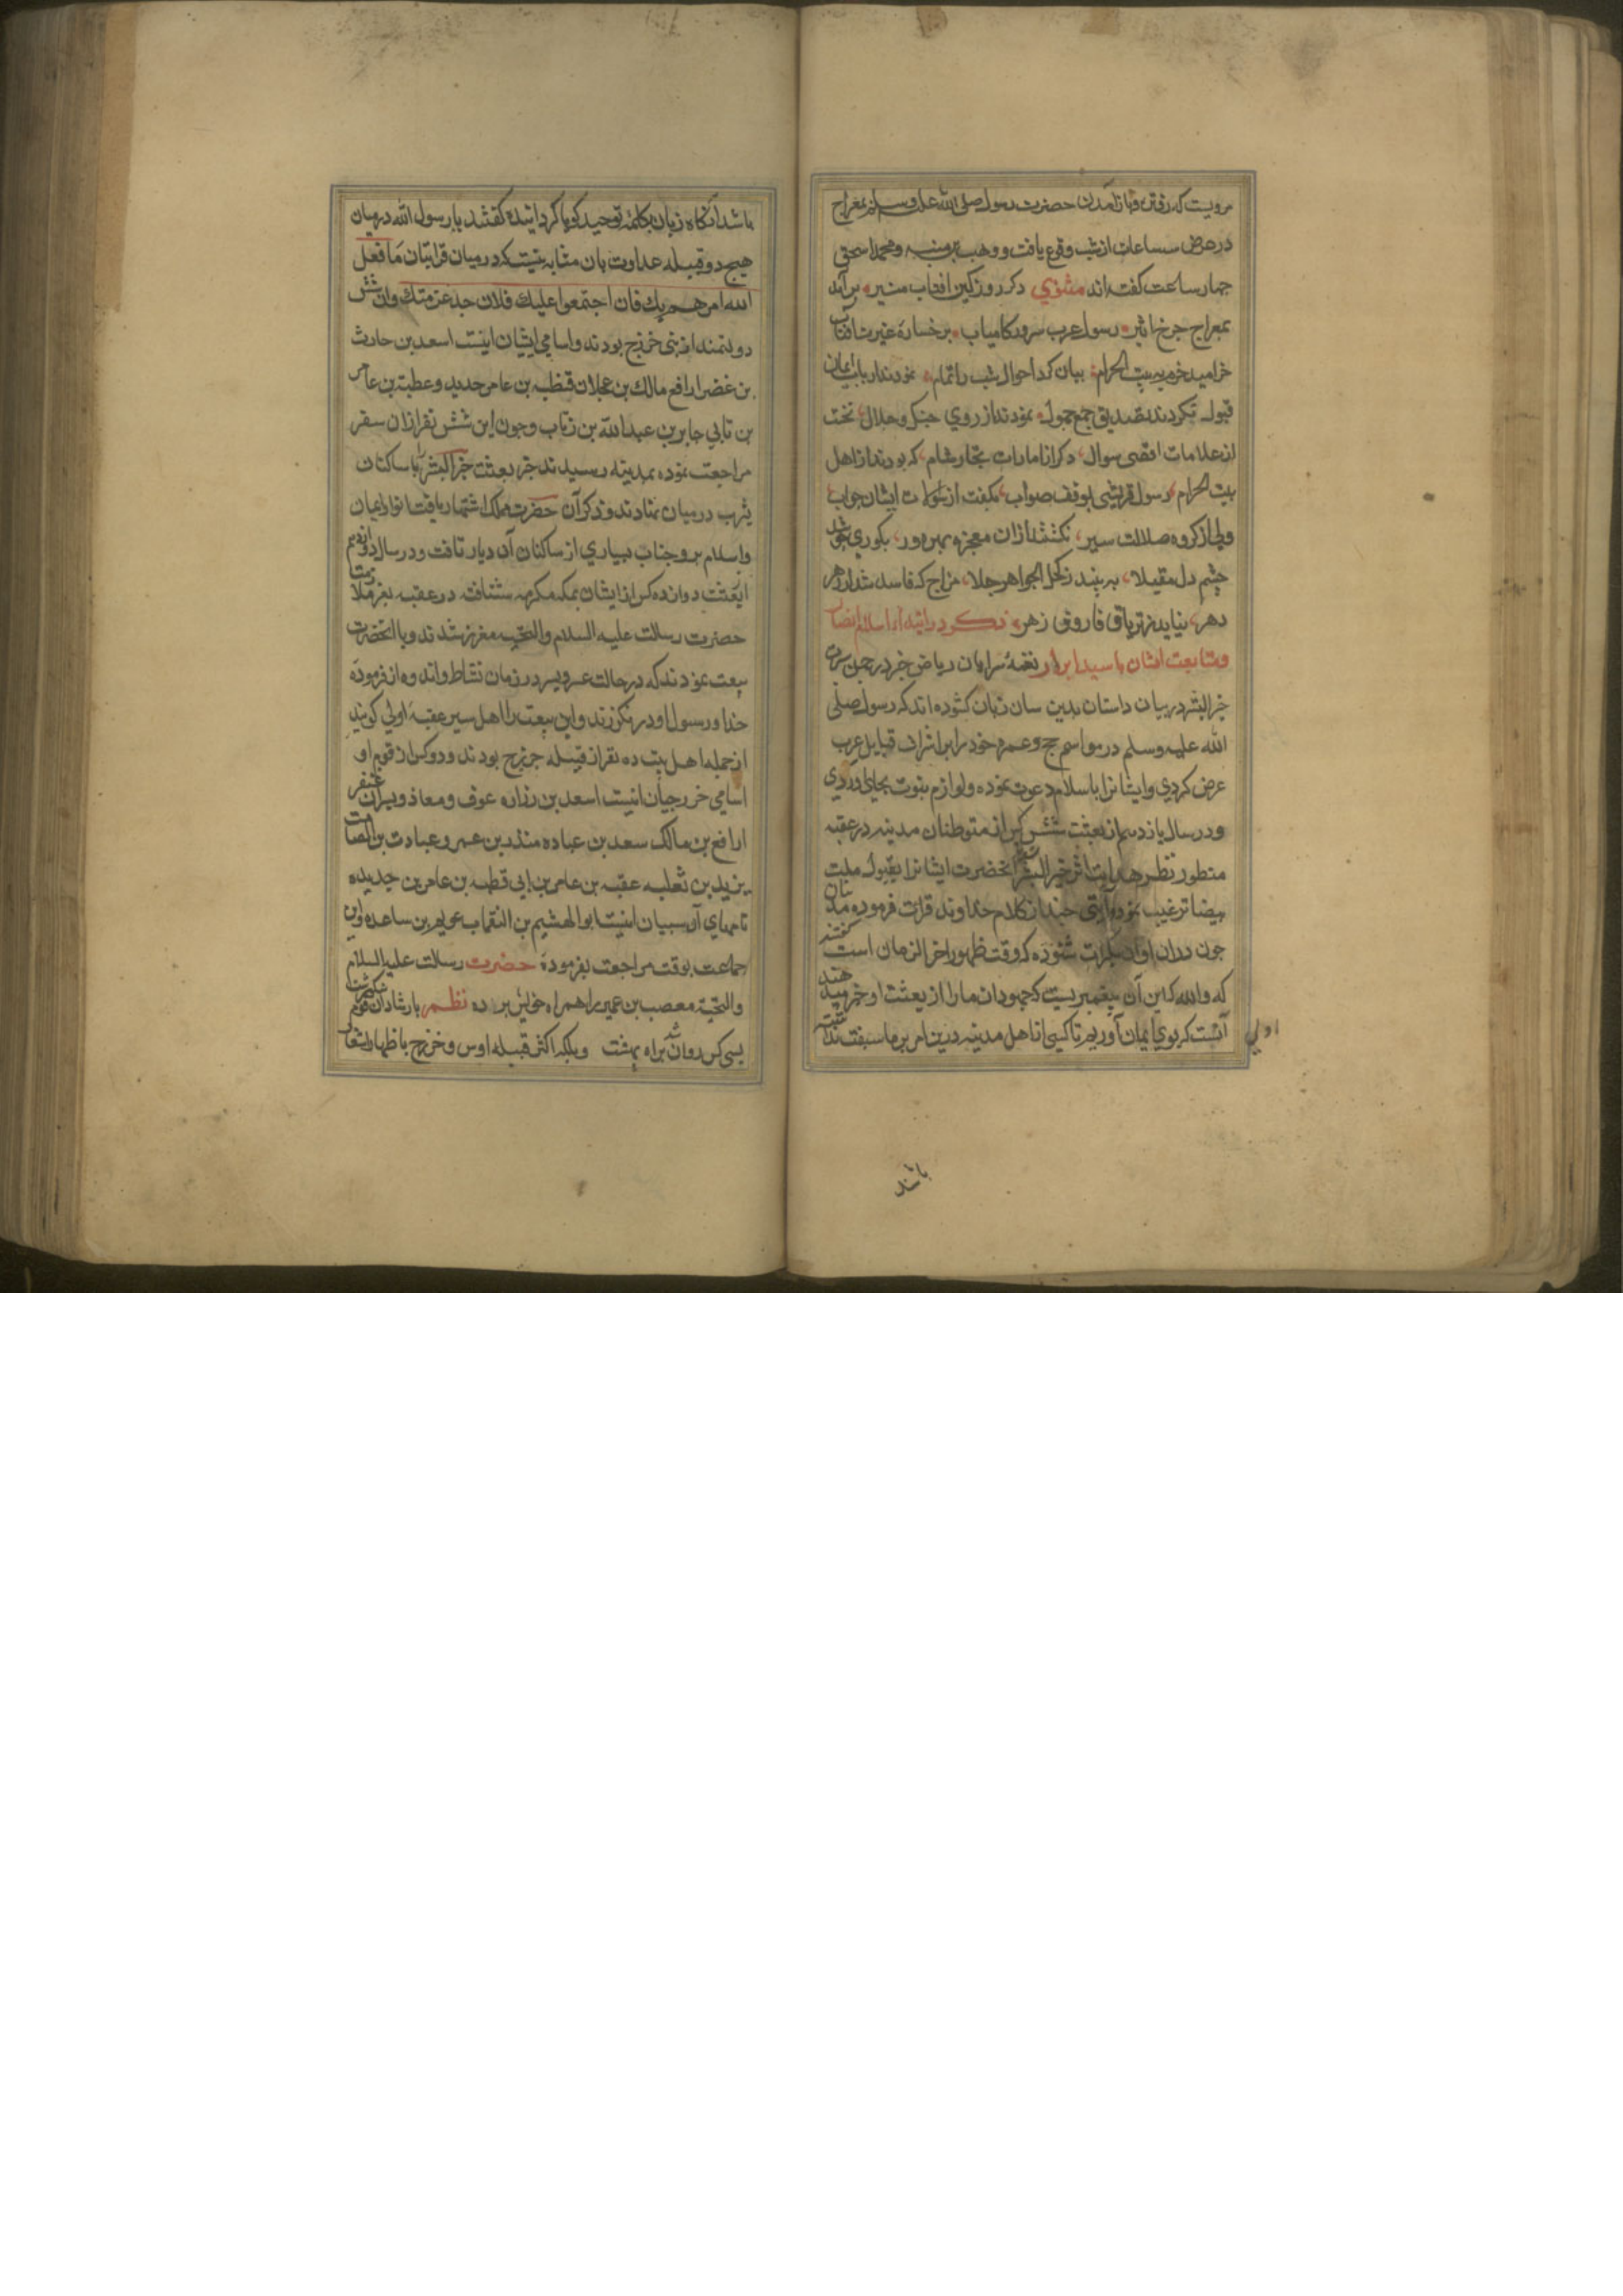 مرویست که رفتن و باز آمدن حضرت رسول صلی الله علیه وسلم بمعراج
در عرض سه ساعات از شب وقوع یافت و وهب بن منبه و محمد اسحق
چهار ساعت گفته اند مثنوي دکر روز کین افتاب منیر برآمد
بمعراج جرخ اثیر رسول عرب سرور کامیاب برخساره غیرت افتاب
خرامید خرم به بیت الحرام بیان کرد احوال شب را تمام نمودند ارباب ایمان
قبول نکردند تصدیق جمع جهول نمودند از روي جنک و جدال نخست
از علامات اقصی سوال دکر از امارات تجار شام که بودند از اهل
بیت الحرام رسول قریشی بوفق صواب بکفت از سوالات ایشان جواب
ولی از کروه ضلالت سیر نکشتند ازان معجزه بهره ور بکوري
چشم دل مقبلا به بیند زکحل الجواهر جلا مزاج که فاسد شد از زهر
دهر نیاید ز تریاق فاروق زهر ذکر در ابتداء اسلام انصار
ومتابعت ایشان با سید ابرار نغمه سرایان ریاض خبر در چمن
خیر البشر در بیان داستان بدین سان زبان کشوده اند که رسول صلی
الله علیه وسلم در مواسم حج و عمره خود را بر اشراف قبایل عرب
عرض کردي و ایشانرا باسلام دعوت نموده و لوازم نبوت بجاي اوردي
و در سال یازدهم از بعثت شش کس از متوطنان مدینه در عقبه
منظور نظر هدایت اثر خیر البشر شده انحضرت ایشانرا بقبول ملت
بیضا ترغیب نموده ایتی چند از کلام خداوند قرات فرموده
جون دران اوان بکرات شنوده که وقت ظهور اخر الزمان است گفتند
که والله که این آن پیغمبریست که جهودان ما را از بعثت او خبر میدهند
آنست که بوي ایمان آوریم تا کسی از اهل مدینه درین امر بر ما سبقت
اولي
باشد
باشد آنکاه زبان بکلمه توحید کویا کردانیده کفتند یا رسول الله درمیان
هیچ دو قبیله عداوت بان مثابه نیست که درمیان قرابتان ما فعل
الله امرهم بك فان اجتمعوا علیك فلان جد عز منك وان شش
دولتمند از بنی خزرج بودند و اسامی ایشان اینست اسعد بن حارث
بن رافع مالك بن عجلان قطبه بن عامر حدید و عطبه بن عامر
بن نابي جابر بن عبد الله بن زیاب و جون این شش نفر ازان سفر
مراجعت نموده بمدینه رسیدند خبر بعثت خیر البشر با ساکنان
یثرب درمیان نهادند و ذکر آن حضرت اشتهار یافت انوار ایمان
و اسلام بر وجنات بسیاري از ساکنان آن دیار تافت و در سال دوازدهم
از بعثت دوازده کس از ایشان بمکه مکرمه شتافته در عقبه بعز ملازمت
حضرت رسالت علیه السلام والتحیه معزز شدند و با انحضرت
بیعت نمودند که در حالت عسر و یسر در زمان نشاط واند وه از فرموده
خدا و رسول او در نکزرند و این بیعت را اهل سیر عقبه اولي کویند
از جمله اهل بیت ده نفر از قبیله خزرج بودند و دو کس از قوم او
اسامي خزرجیان اینست اسعد بن زراره عوف و معاذ و پسران
رافع بن مالک سعد بن عباده منذر بن عمرو عبادت بن الصامت
یزید بن ثعلبه عقبه بن عامر بن ابی قطبه بن عامر بن حدیده
نامهاي اینست ابوالهشیم بن عویم بن ساعده واین
جماعت بوقت مراجعت بفرموده حضرت رسالت علیه السلام
والتحیة مصعب بن عمیر را همراه خویش برده نظـم
بسی کس روان شد براه بهشت و بلکه اکثر قبیله اوس و خزرج باظهار اشعار